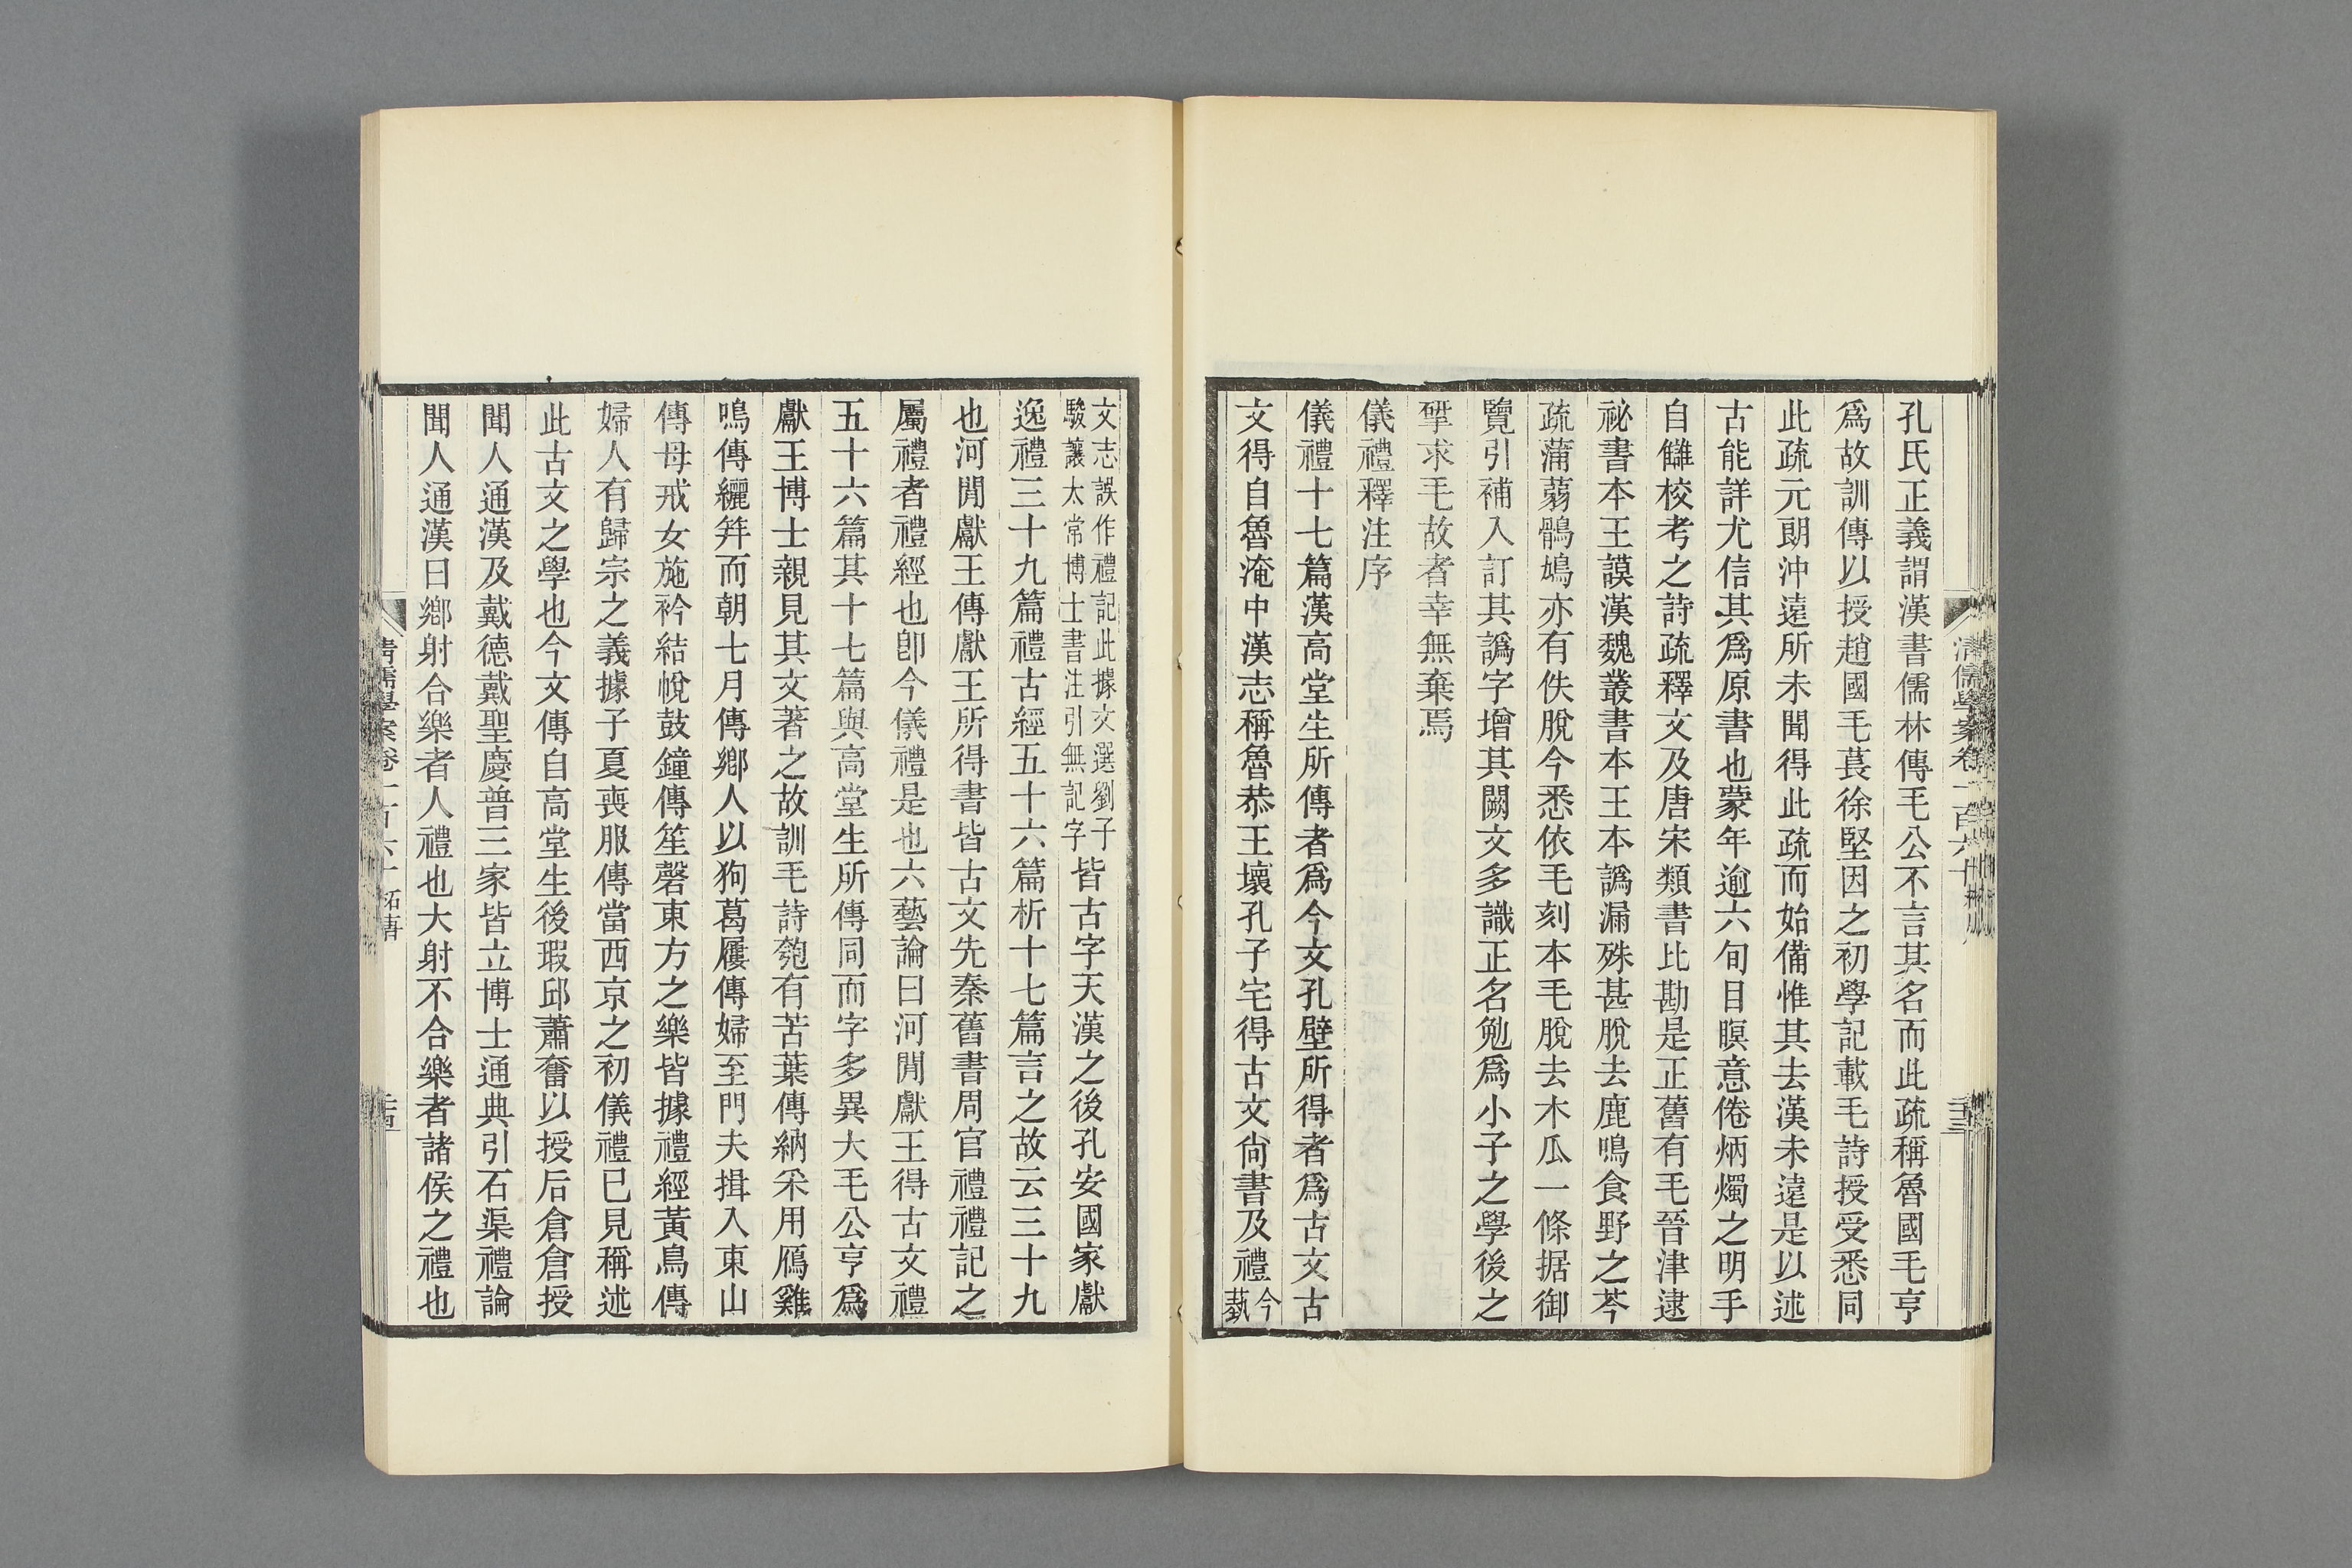 孔氏正義謂漢書儒林傳毛公不言其名而此疏稱魯國毛亨
爲故訓傳以授趙國毛萇徐堅因之初學記載毛詩授受悉同
此疏元朗沖遠所未聞得此疏而始備惟其去漢未遠是以述
古能詳尤信其爲原書也蒙年逾六旬目瞑意倦炳燭之明手
自讎校考之詩疏釋文及唐宋類書比勘是正舊有毛晉津逮
祕書本王謨漢魏叢書本王本譌漏殊甚脫去鹿鳴食野之芩
疏蒲蒻鶻鳩亦有佚脫今悉依毛刻本毛脫去木瓜一條据御
覽引補入訂其譌字增其闕文多識正名勉爲小子之學後之
揅求毛故者幸無棄焉
儀禮釋注序
儀禮十七篇漢高堂生所傳者爲今文孔壁所得者爲古文古
文得自魯淹中漢志稱魯恭王壞孔子宅得古文尙書及禮今
藝
文志誤作禮記此據文選劉子
駿讓太常博士書注引無記字
皆古字天漢之後孔安國家獻
逸禮三十九篇禮古經五十六篇析十七篇言之故云三十九
也河閒獻王傳獻王所得書皆古文先秦舊書周官禮禮記之
屬禮者禮經也卽今儀禮是也六藝論曰河閒獻王得古文禮
五十六篇其十七篇與高堂生所傳同而字多異大毛公亨爲
獻王博士親見其文著之故訓毛詩匏有苦葉傳納采用鴈雞
鳴傳纚笄而朝七月傳鄉人以狗葛屨傳婦至門夫揖入東山
傳母戒女施衿結帨鼓鐘傳笙磬東方之樂皆據禮經黃鳥傳
婦人有歸宗之義據子夏喪服傳當西京之初儀禮已見稱述
此古文之學也今文傳自高堂生後瑕邱蕭奮以授后倉倉授
聞人通漢及戴德戴聖慶普三家皆立博士通典引石渠禮論
聞人通漢曰鄉射合樂者人禮也大射不合樂者諸侯之禮也